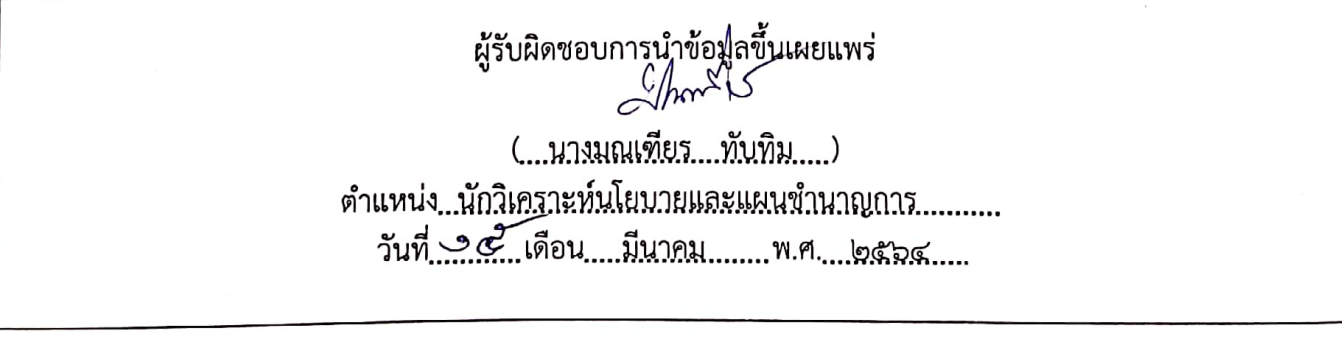 ผู้รับผิดชอบการนำข้อมูลขึ้นเผยแพร่
(....นางมณเฑียร....ทับทิม.....)
ตำแหน่ง...นักวิเคราะห์นโยบายและแผนชำนาญการ...........
วันที่ ๑๕ เดือน.....มีนาคม........ พ.ศ. ....๒๕๖๔.....